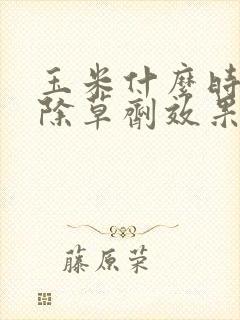 玉米什麼時
除草劑效果
藤原荣